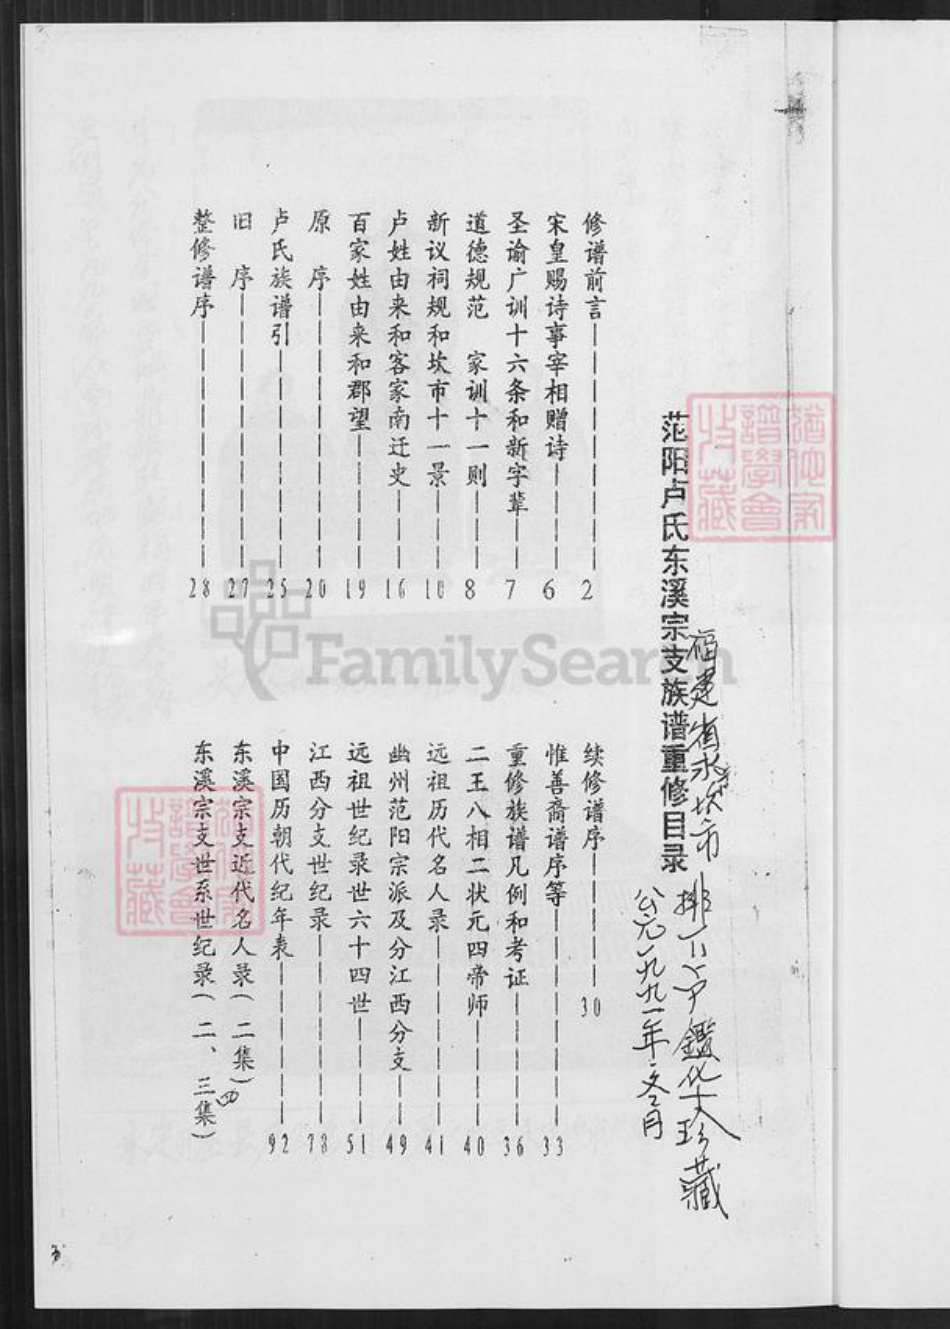 范阳卢氏东溪宗支族谱重修目录
福建省永坎市
鑑华珍藏
公元一九九一年冬月
修谱前言 2
宋皇赐诗事宰相赠诗 6
圣谕广训十六条和新字辈 7
道德规范 家训十一则 8
新议祠规和坎市十一景 10
卢姓由来和客家南迁史 16
百家姓由来和郡望 19
原 序 20
卢氏族谱引 25
旧 序 27
整修谱序 28
续修谱序 30
惟善裔谱序等 33
重修族谱凡例和考证 36
二王八相二状元四帝师 40
远祖历代名人录 41
幽州范阳宗派及分江西分支 49
远祖世纪录世六十四世 51
江西分支世纪录 78
中国历朝历代纪年表 92
东溪宗支近代名人录(二集)四
东溪宗支世系世纪录(二、三集)
譜學會
收藏
譜學會
收藏
FamilySearch